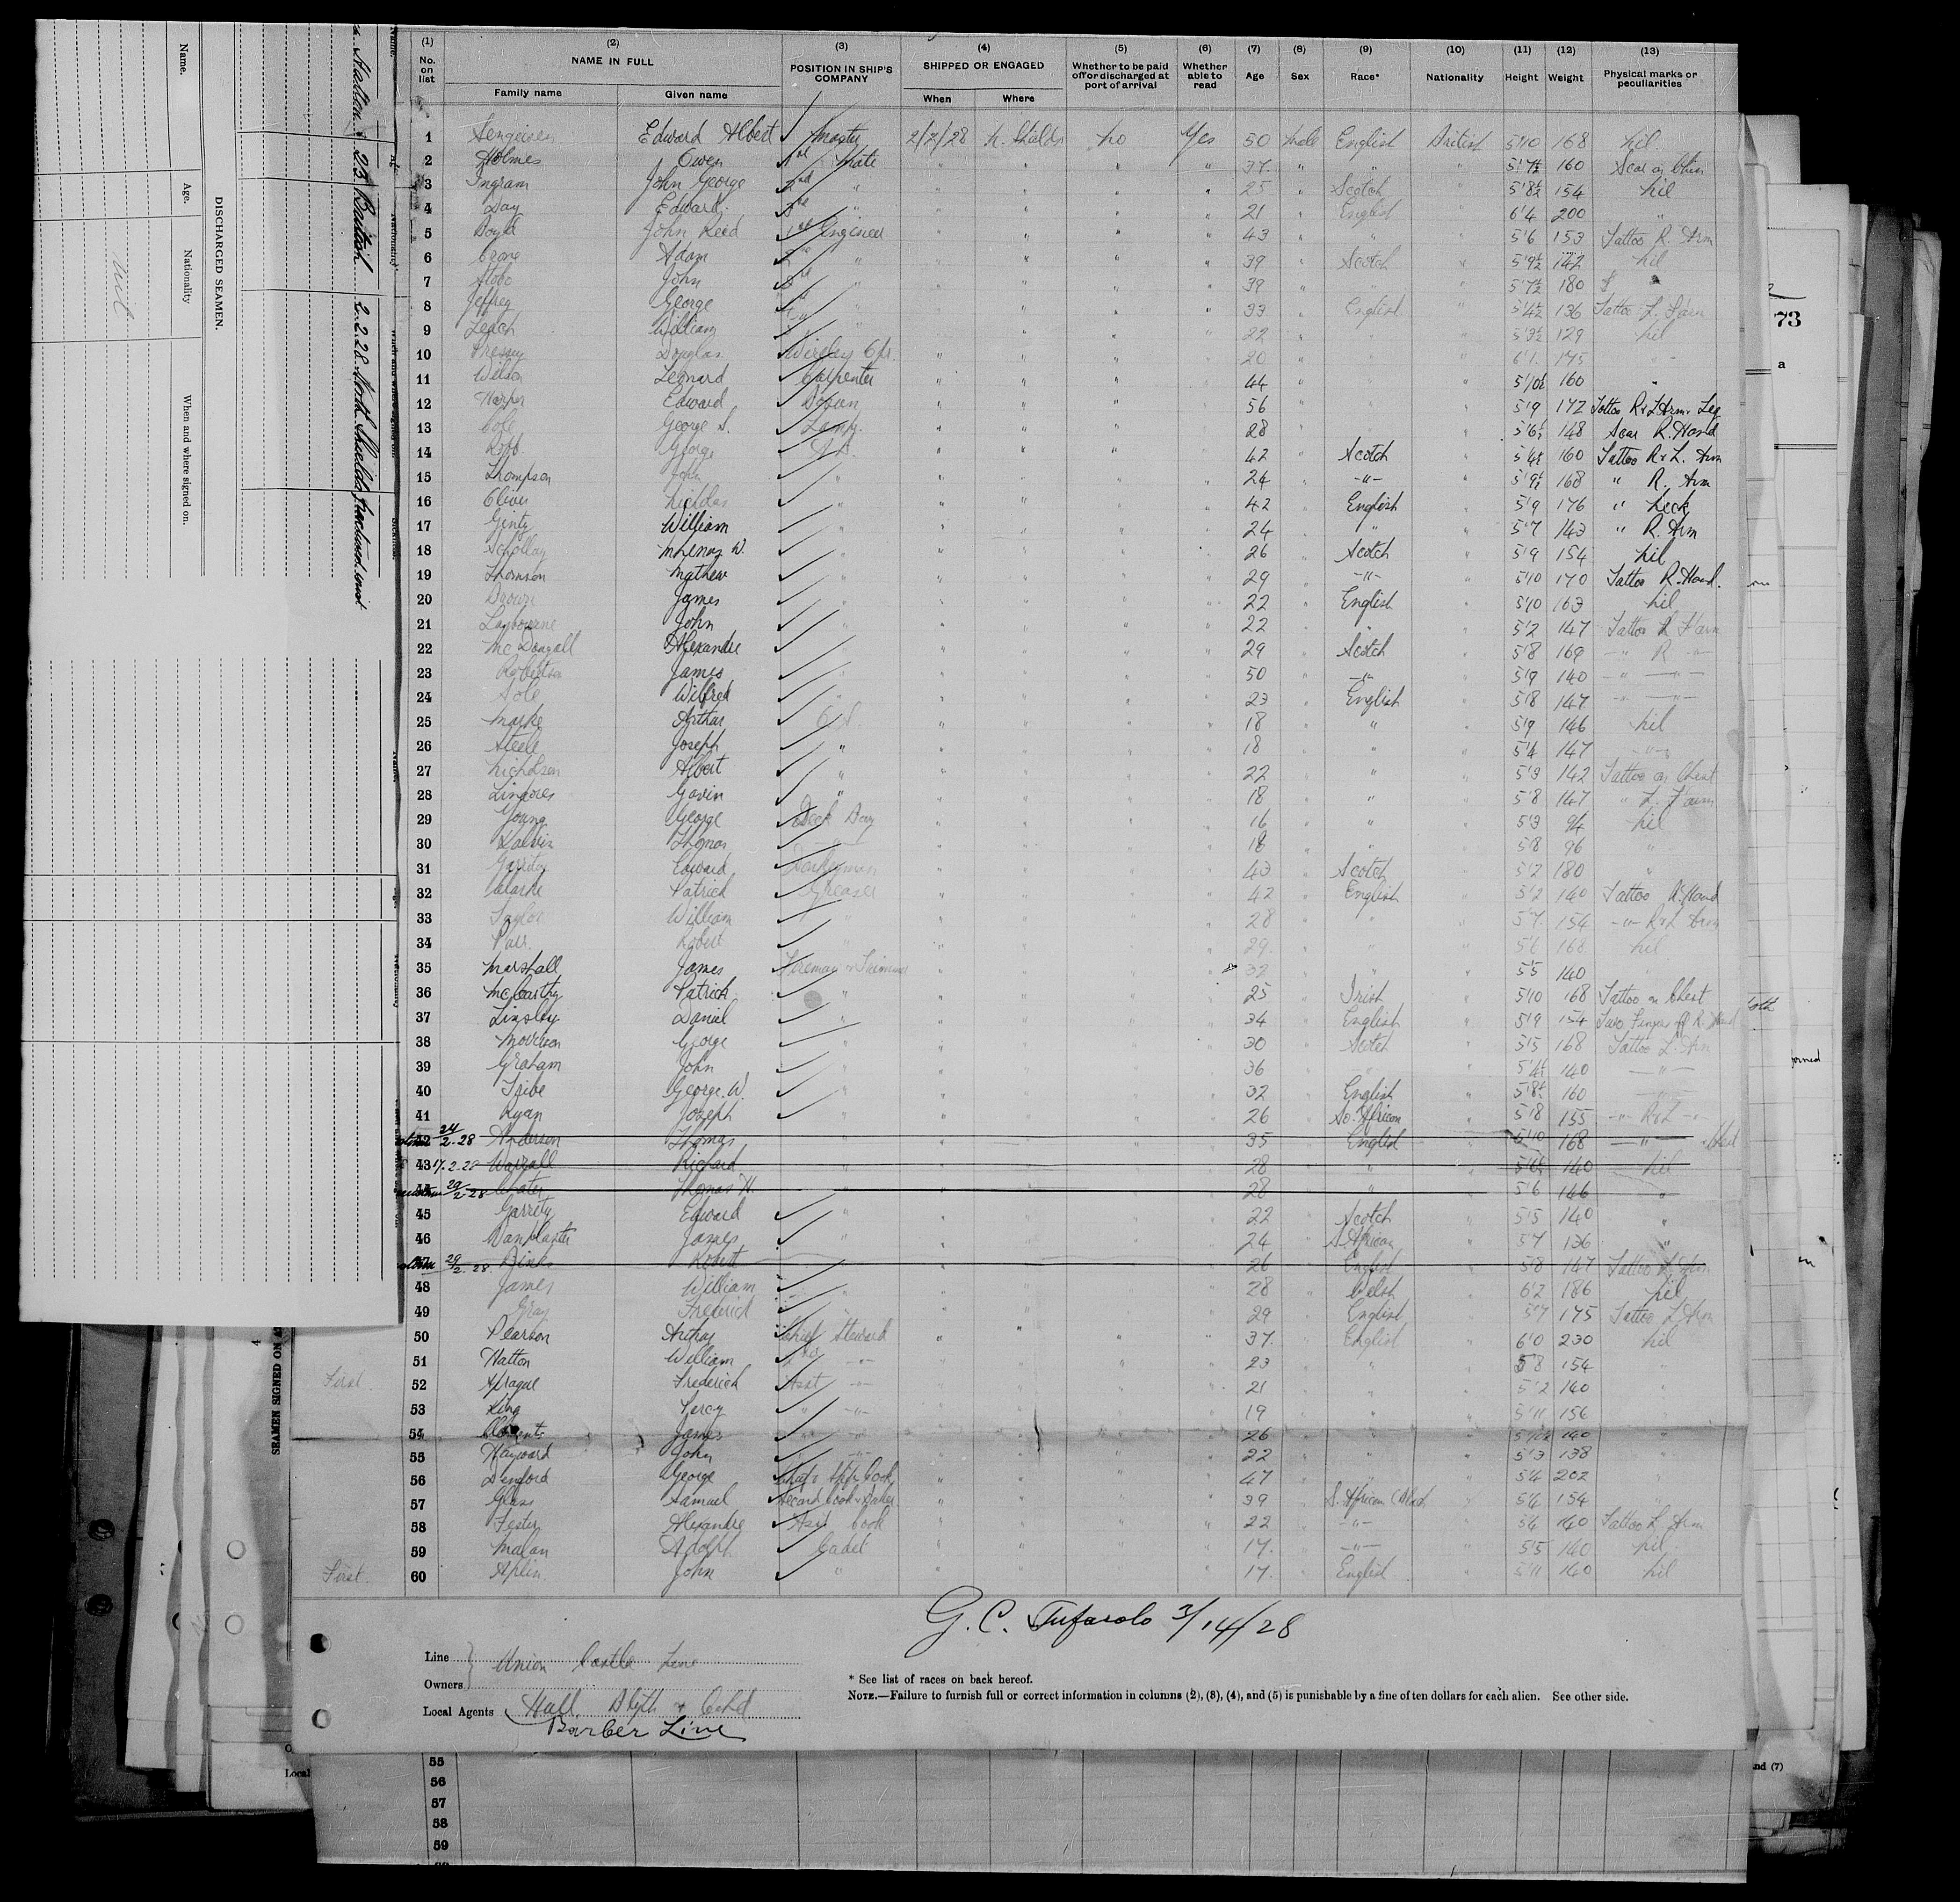 (1) (2) (3) (4) (5) (6) (7) (8) (9) (10) (11) (12) (13)
No. on list NAME IN FULL POSITION IN SHIP'S COMPANY SHIPPED OR ENGAGED Whether to be paid off or discharged at port of arrival Whether able to read Age Sex Race* Nationality Height Weight Physical marks or peculiarities
Family name Given name When Where
1 Edward Albert Master 2/2/28 N. Shields No Yes 50 Male English British 5'10 168 Nil
2 Holmes Owen 1st Mate " " " " 37 " " " 5'7½ 160 Scar on Chin
3 Ingram John George 2nd " " " " " 25 " Scotch " 5'8½ 154 Nil
4 Day Edward 3rd " " " " " 21 " English " 6'4 200 "
5 Boyd John Reed 1st Engineer " " " " 43 " " " 5'6 153 Tattoo R. Arm
6 Adam " " " " " 39 " Scotch " 5'9½ 142 Nil
7 John " " " " " 39 " " 5'7½ 180 "
8 Jeffrey George " " " " " 33 " English " 5'4½ 136 Tattoo L. F'arm
9 Leach William " " " " " 22 " " 5'3½ 129 Nil
10 Douglas Wireless Opr. " " " " 20 " " 6'1 175 "
11 Wilson Leonard Carpenter " " " 44 " " 5'10½ 160 "
12 Harper Edward Bosun " " " 56 5'9 172 Tattoo R & L Arm & Leg
13 Cole George S. Lamp. " " " 28 5'6½ 148 Scar R. Hand
14 Robb George A.B. " " " 42 " Scotch " 5'4½ 160 Tattoo R & L. Arm
15 Thompson John " " " 24 -"- 5'9½ 168 " R. Arm
16 Oliver Nicholas " " " 42 English 5'9 176 " Neck
17 Genty William " " " 24 " 5'7 143 " R. Arm
18 Schollay W. " " " 26 Scotch 5'9 154 Nil
19 Thomson Mathew " " " 29 -"- 5'10 170 Tattoo R. Hand.
20 Brown James " " " 22 English 5'10 163 Nil
21 Laybourne John " " " 22 " 5'2 147 Tattoo R F'arm
22 McDougall Alexander " " " 29 Scotch 5'8 169 -"- R -"-
23 Robertson James " " " 50 -"- 5'9 140 -"- -"-
24 Sole Wilfred " " " 23 English 5'8 147 -"- -"-
25 Marke Arthur O.S. " " " 18 " 5'9 146 Nil
26 Steele Joseph " " " " 18 " 5'4 147 -"-
27 Nicholson Albert " " " " 22 " 5'3 142 Tattoo on Chest
28 Lindores Gavin " " " " 18 " 5'8 147 " L. F'arm
29 Young George Deck Boy " " " 16 " 5'3 94 Nil
30 Thomas " " " 18 " 5'8 96 "
31 Garrity Edward Donkeyman " " " 43 Scotch 5'2 180 "
32 Clarke Patrick Greaser " " " 42 English 5'2 140 Tattoo R. Hand
33 Taylor William " " " 28 " 5'7 154 -"- R & L Arm
34 Parr Robert " " " 29 " 5'6 168 Nil
35 Marshall James Fireman & Trimmer " " " 32 " 5'5 140
36 McCarthy Patrick " " " 25 Irish 5'10 168 Tattoo on Chest
37 Linsley Daniel " " " 34 English 5'9 154 Two Fingers off R. Hand
38 Morrison George " " " 30 Scotch 5'5 168 Tattoo L. Arm
39 Graham John " " " 36 5'4½ 140 -"-
40 Tribe George W. " " " 32 English 5'8½ 160
41 Ryan Joseph " " " 26 So. African 5'8 155 -"- R & L -"-
42 24/2.28 Anderson Thomas " " " 35 English 5'10 168 -"- Chest
43 17.2.28 Worrall Richard " " " 28 " 5'6½ 140 Nil
29/2.28 Thomas H. " " " 28 " 5'6 146 "
45 Garrity Edward " " " 22 Scotch 5'5 140 "
46 James " " " 24 S. African 5'7 136 "
29/2.28 Binks Robert " " " 26 English 5'8 147 Tattoo L Arm
48 James William " " " 28 Welsh 6'2 186 Nil
49 Gray Frederick " " " 29 English 5'7 175 Tattoo L Arm
50 Pearson Arthur Chief Steward " " " 37 English 6'0 230 Nil
51 Hatton William 2nd -"- " " " 23 " 5'8 154 "
First 52 Sprague Frederick Asst -"- " " " 21 " 5'2 140 "
53 King Percy " -"- " " " 19 " 5'11 156
54 Clements James " " " 26 " 140 "
55 Hayward John -"- " " " 22 " 5'3 138 "
56 Denford George Chief & Ship's Cook " " " 47 " 5'4 202
57 Glass Samuel Second Cook & Baker " " " 39 S. African (Black 5'6 154
58 Fester Alexandre Asst Cook " " " 22 -"- 5'4 140 Tattoo L Arm
59 Malan Adolph Cadet " " " 17. -"- 5'5 140 Nil
First. 60 Aplin John " " " 17. English 5'11 140 Nil
G. C. Tufarolo 3/14/28
Line Union Castle Line
Owners
Local Agents Hall, Blyth & Co Ltd
Barber Line
* See list of races on back hereof.
NOTE.—Failure to furnish full or correct information in columns (2), (3), (4), and (5) is punishable by a fine of ten dollars for each alien. See other side.
DISCHARGED SEAMEN.
Name. Age. Nationality When and where signed on.
Nil
Hatton 23. British 2.2.28. North Shields fractured wrist
SEAMEN SIGNED ON
73
a
and (7)
Local
55
56
57
58
59